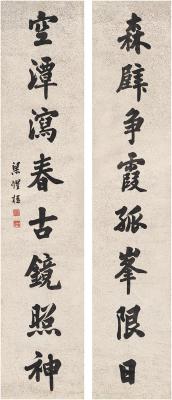 森壁争霞孤峯限日
空潭瀉春古鏡照神
梁燿樞